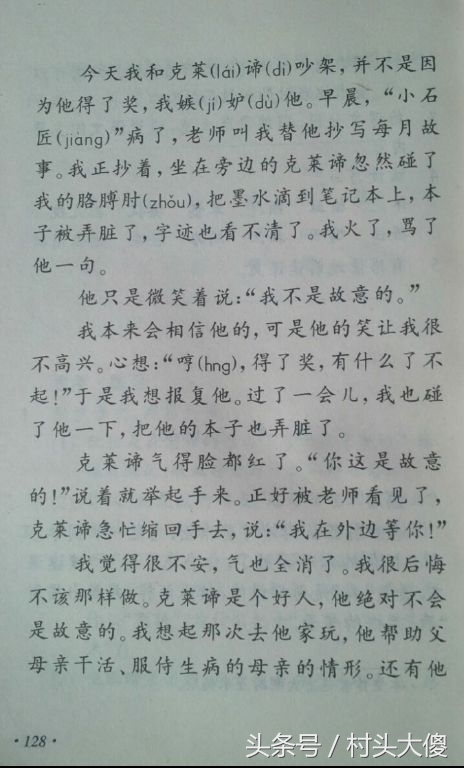 今天我和克莱(lái)谛(dì)吵架,并不是因
为他得了奖,我嫉(jí)妒(dù)他。早晨,“小石
匠(jiàng)”病了,老师叫我替他抄写每月故
事。我正抄着,坐在旁边的克莱谛忽然碰了
我的胳膊肘(zhǒu),把墨水滴到笔记本上,本
子被弄脏了,字迹也看不清了。我火了,骂了
他一句。
他只是微笑着说:“我不是故意的。”
我本来会相信他的,可是他的笑让我很
不高兴。心想:“哼(hng),得了奖,有什么了不
起!”于是我想报复他。过了一会儿,我也碰
了他一下,把他的本子也弄脏了。
克莱谛气得脸都红了。“你这是故意
的!”说着就举起手来。正好被老师看见了,
克莱谛急忙缩回手去,说:“我在外边等你!”
我觉得很不安,气也全消了。我很后悔
不该那样做。克莱谛是个好人,他绝对不会
是故意的。我想起那次去他家玩,他帮助父
母亲干活、服侍生病的母亲的情形。还有他
·128·
头条号 / 村头大傻